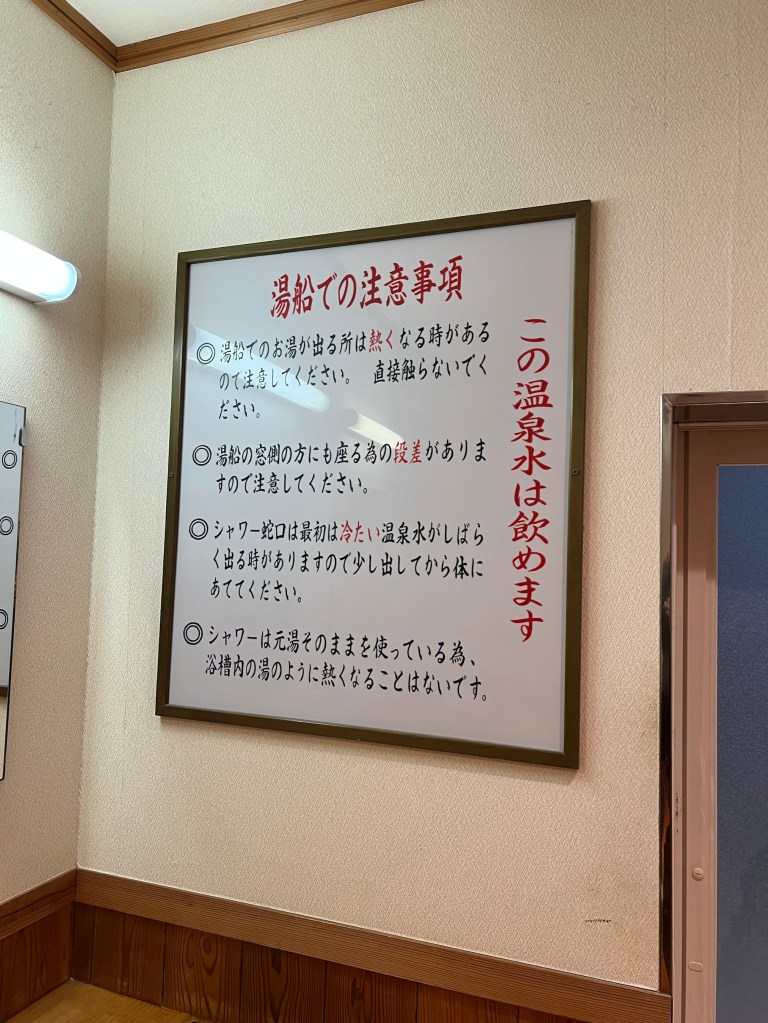 湯船での注意事項
◎湯船でのお湯が出る所は熱くなる時がある
ので注意してください。 直接触らないでく
ださい。
◎湯船の窓側の方にも座る為の段差がありま
すので注意してください。
◎シャワー蛇口は最初は冷たい温泉水がしばら
く出る時がありますので少し出してから体に
あててください。
◎シャワーは元湯そのままを使っている為、
浴槽内の湯のように熱くなることはないです。
この温泉水は飲めます